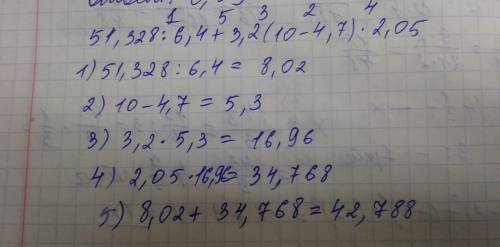 1 5 3 2 4
51,328:6,4+3,2(10-4,7)·2,05
1) 51,328:6,4= 8,02
2) 10-4,7=5,3
3) 3,2·5,3=16,96
4) 2,05·16,96=34,768
5) 8,02+34,768=42,788